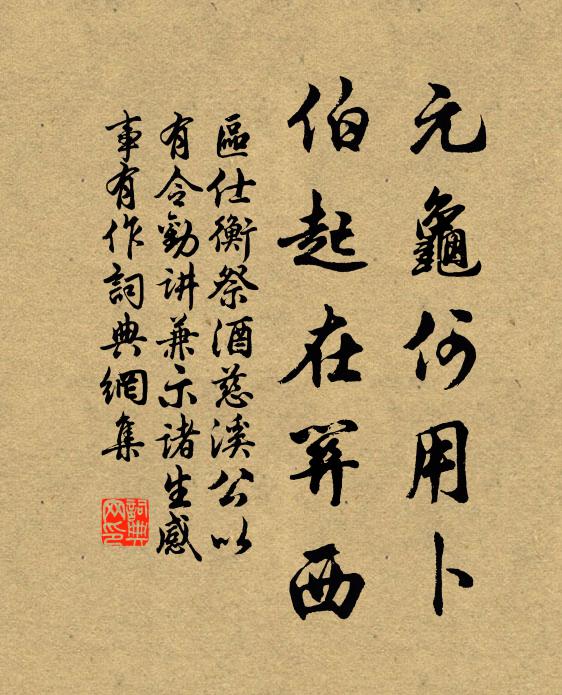 元龜何用卜
伯起在關西
區仕衡祭酒慈溪公以
有令勸讲兼示諸生感
事有作詞典網集
詞典
网印